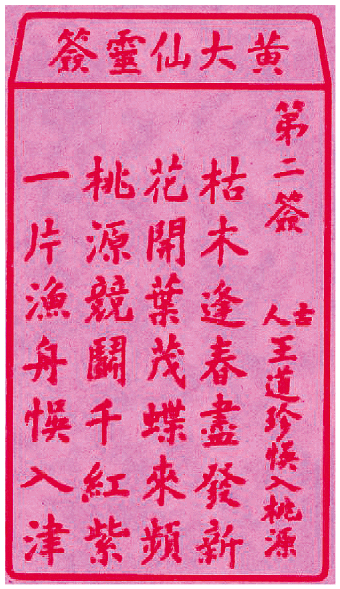 黄大仙靈簽
第二簽
古人
王道珍悞入桃源
枯木逢春盡發新
花開葉茂蝶來頻
桃源競鬪千紅紫
一片漁舟悞入津